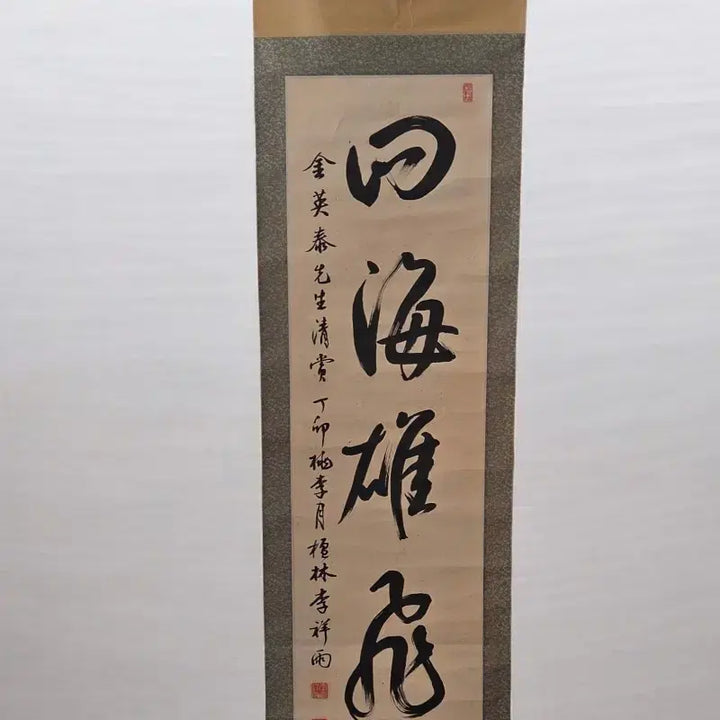 四海雄飛
金英泰先生清賞 丁卯桃李月 檀林李祥雨